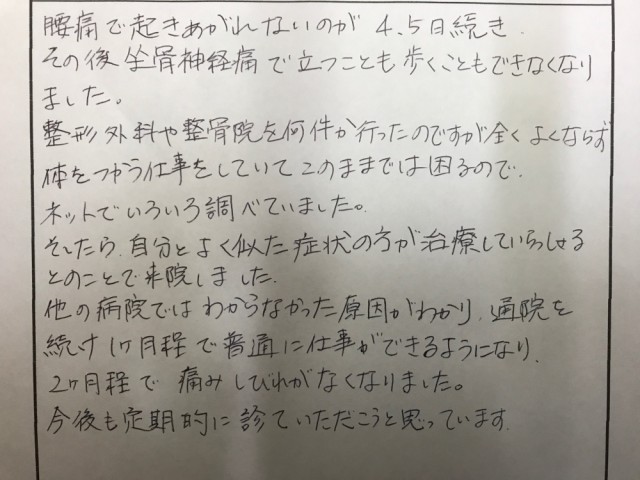 腰痛で起きあがれないのが 4.5日続き.
その後坐骨神経痛で立つことも歩くこともできなくなり
ました。
整形外科や整骨院を何件か行ったのですが全くよくならず
体をつかう仕事をしていてこのままでは困るので.
ネットでいろいろ調べていました。
そしたら.自分とよく似た症状の方が治療していらっしゃる
とのことで来院しました.
他の病院ではわからなかった原因がわかり.通院を
続け1ヶ月程で普通に仕事ができるようになり.
2ヶ月程で 痛みしびれがなくなりました。
今後も定期的に診ていただこうと思っています.